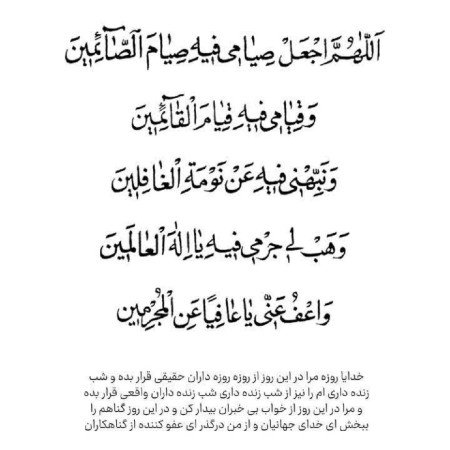 اَللّٰهُمَّ اجْعَلْ صِيٰامي فيهِ صِيٰامَ الصّٰآئِمينَ
وَ قِيٰامي فيهِ قِيٰامَ الْقٰآئِمينَ
وَ نَبِّهْني فيهِ عَنْ نَوْمَةِ الْغٰافِلينَ
وَ هَبْ لي جُرْمي فيهِ يٰا اِلٰهَ الْعٰالَمينَ
وَ اعْفُ عَنّي يٰا عٰافِياً عَنِ الْمُجْرِمينَ
خدایا روزه مرا در این روز از روزه روزه داران حقیقی قرار بده و شب
زنده داری ام را نیز از شب زنده داری شب زنده داران واقعی قرار بده
و مرا در این روز از خواب بی خبران بیدار کن و در این روز گناهم را
ببخش ای خدای جهانیان و از من درگذر ای عفو کننده از گناهکاران